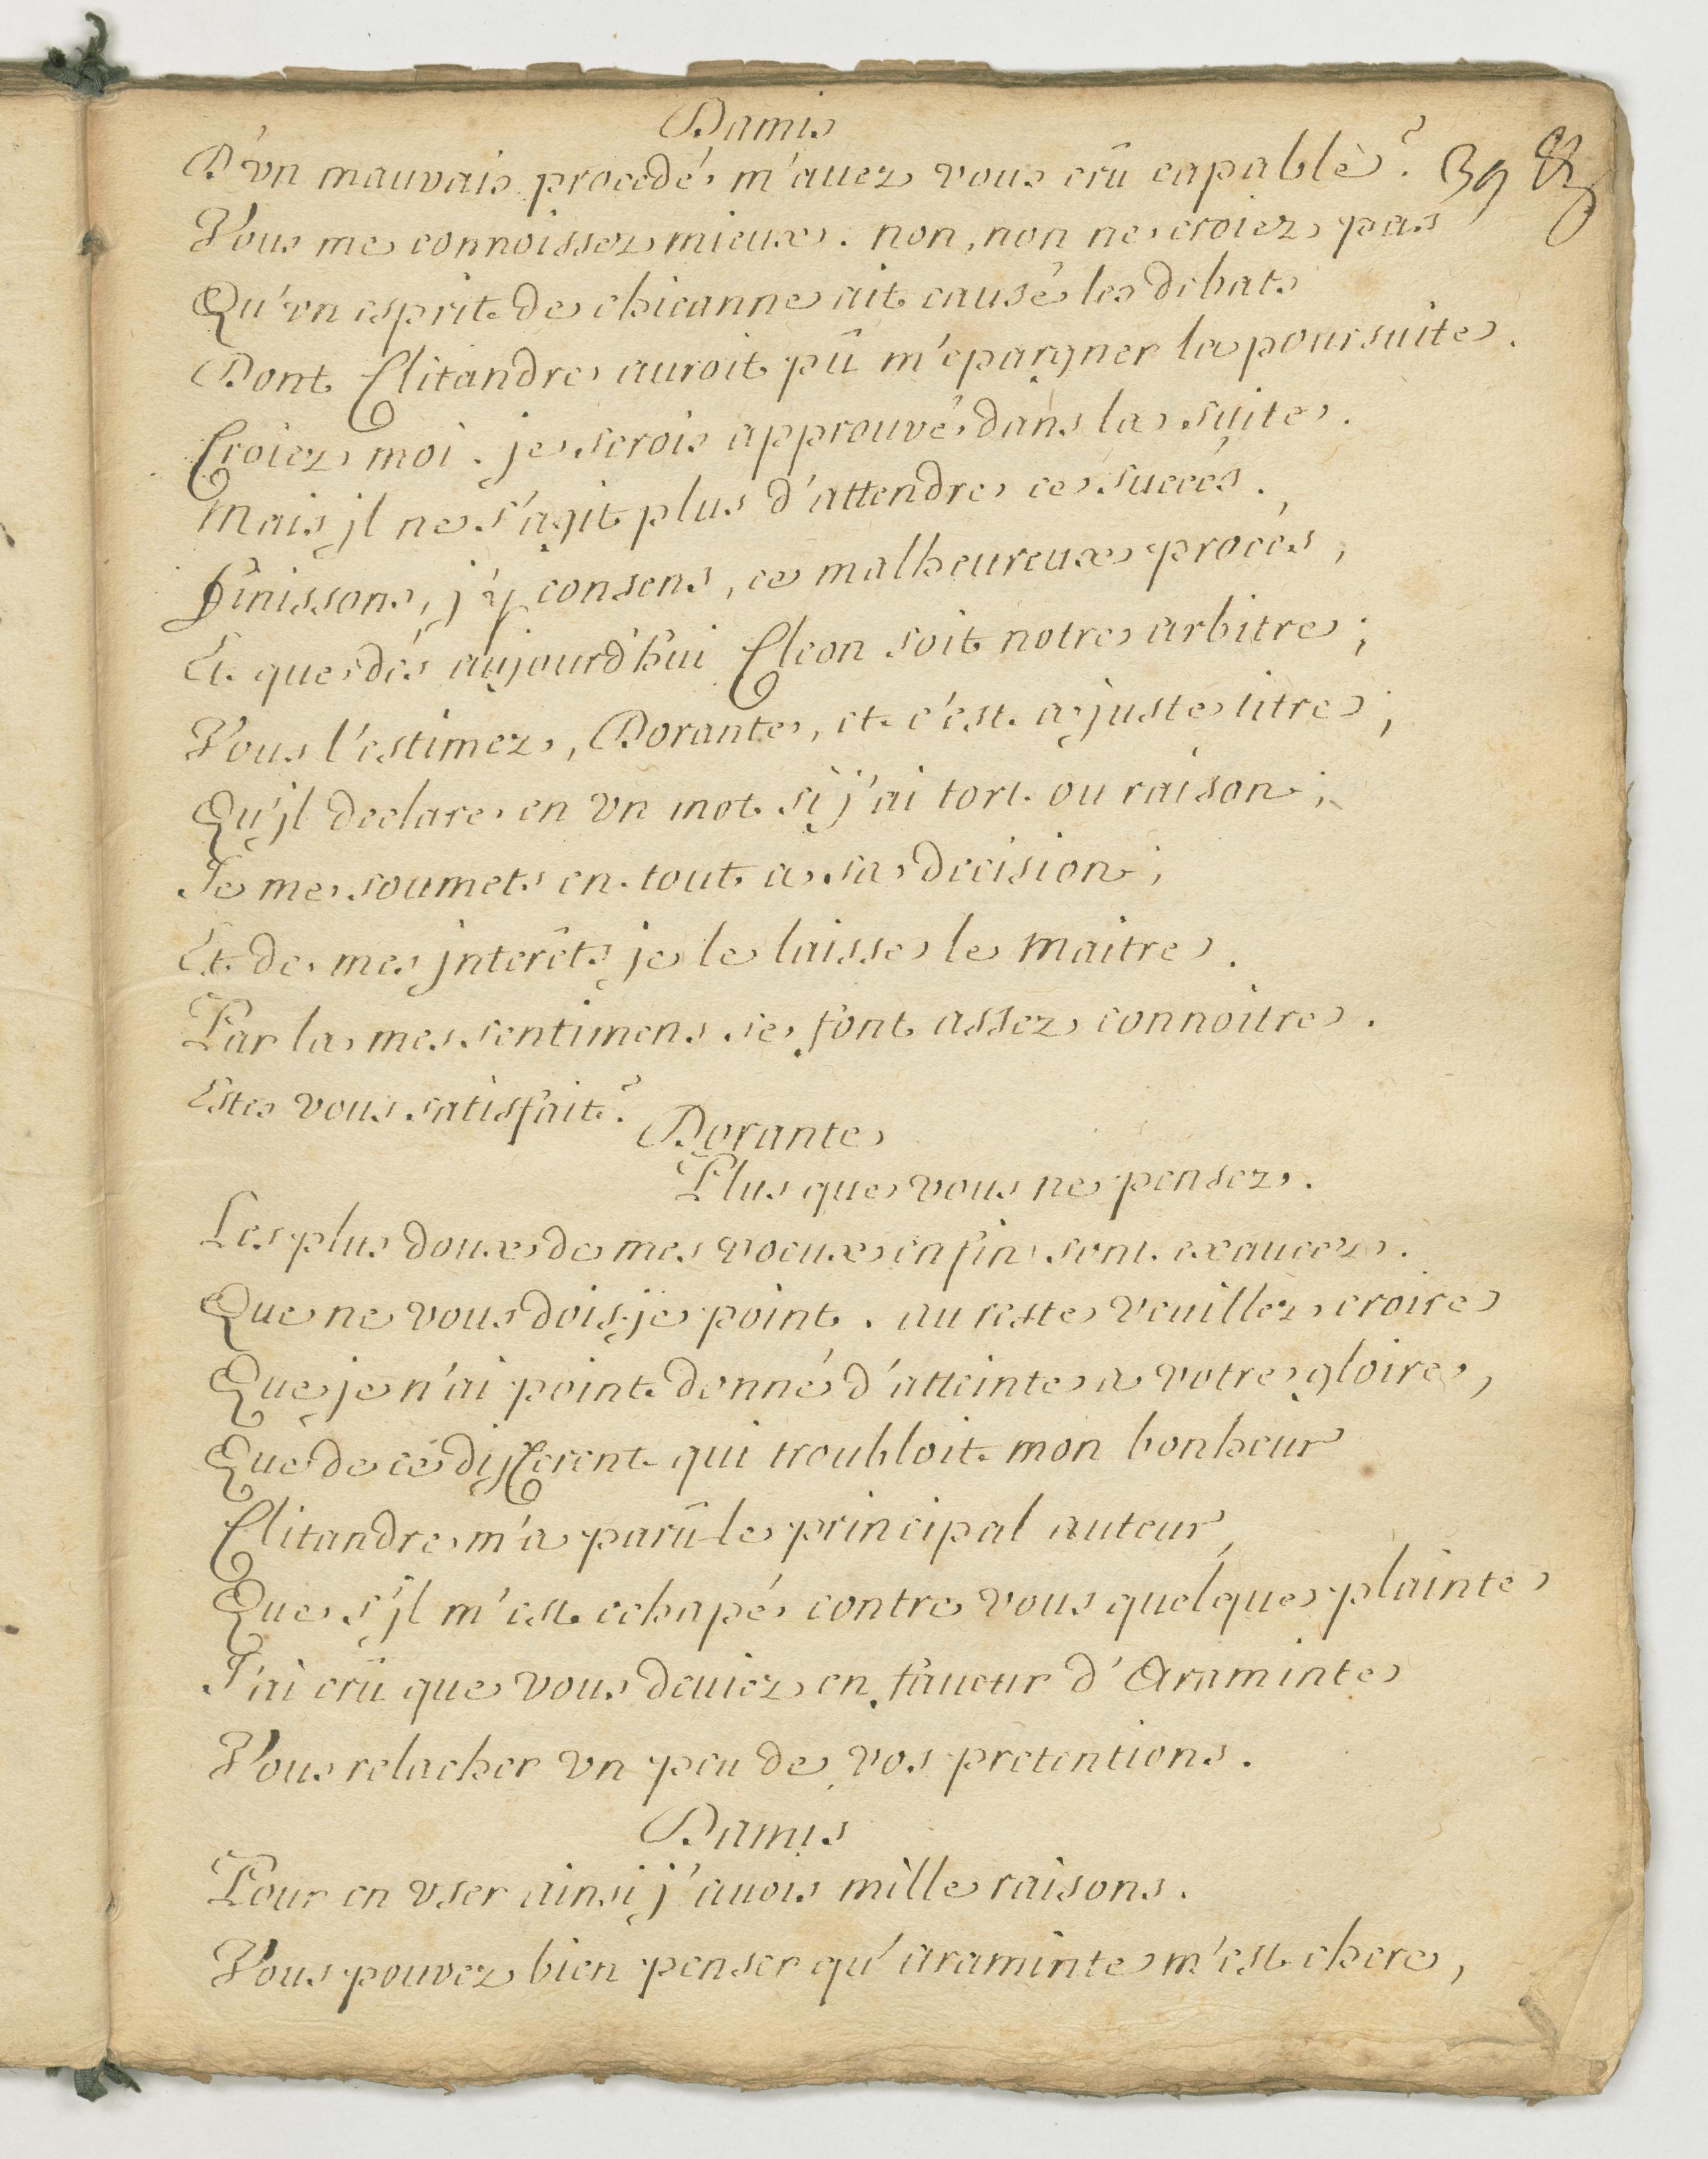 Damis
D'vn mauvais procedé m'auez vous crû capable? 39
Vous me connoissez mieux. non, non ne croiez pas
Qu'vn esprit de chicanne ait causé les debats
Dont Clitandre auroit pû m'epargner la poursuite.
Croiez moi. je serois approuvé dans la suite.
Mais jl ne s'agit plus d'attendre ce succés.
Finissons, j'y consens, ce malheureux procés,
Et que dés aujourd'hui Cleon soit notre arbitre;
Vous l'estimez, Dorante, et c'est a juste titre;
Qu'jl declare en vn mot si j'ai tort ou raison;
Je me soumets en tout a sa decision;
Et de mes jnterêts je le laisse le maitre.
Par la mes sentimens se font assez connoitre.
Estes vous satisfait?
Dorante
Plus que vous ne pensez.
Les plus doux de mes voeux enfin sont exaucez.
Que ne vous dois-je point. au reste veuillez croire
Que je n'ai point donné d'atteinte a votre gloire,
Que de ce different qui troubloit mon bonheur
Clitandre m'a parû le principal auteur,
Que s'jl m'est echapé contre vous quelque plainte
J'ai crû que vous deuiez en faueur d'Araminte
Vous relacher vn peu de vos pretentions.
Damis
Pour en vser ainsi j'auois mille raisons.
Vous pouvez bien penser qu'araminte m'est chere,